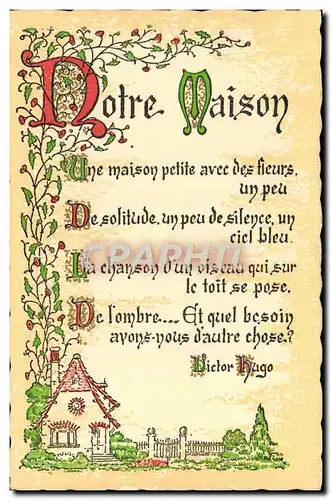 Notre Maison
Une maison petite avec des fleurs,
un peu
De solitude, un peu de silence, un
ciel bleu.
La chanson d'un oiseau qui sur
le toit se pose,
De l'ombre.... Et quel besoin
avons-nous d'autre chose?
Victor Hugo